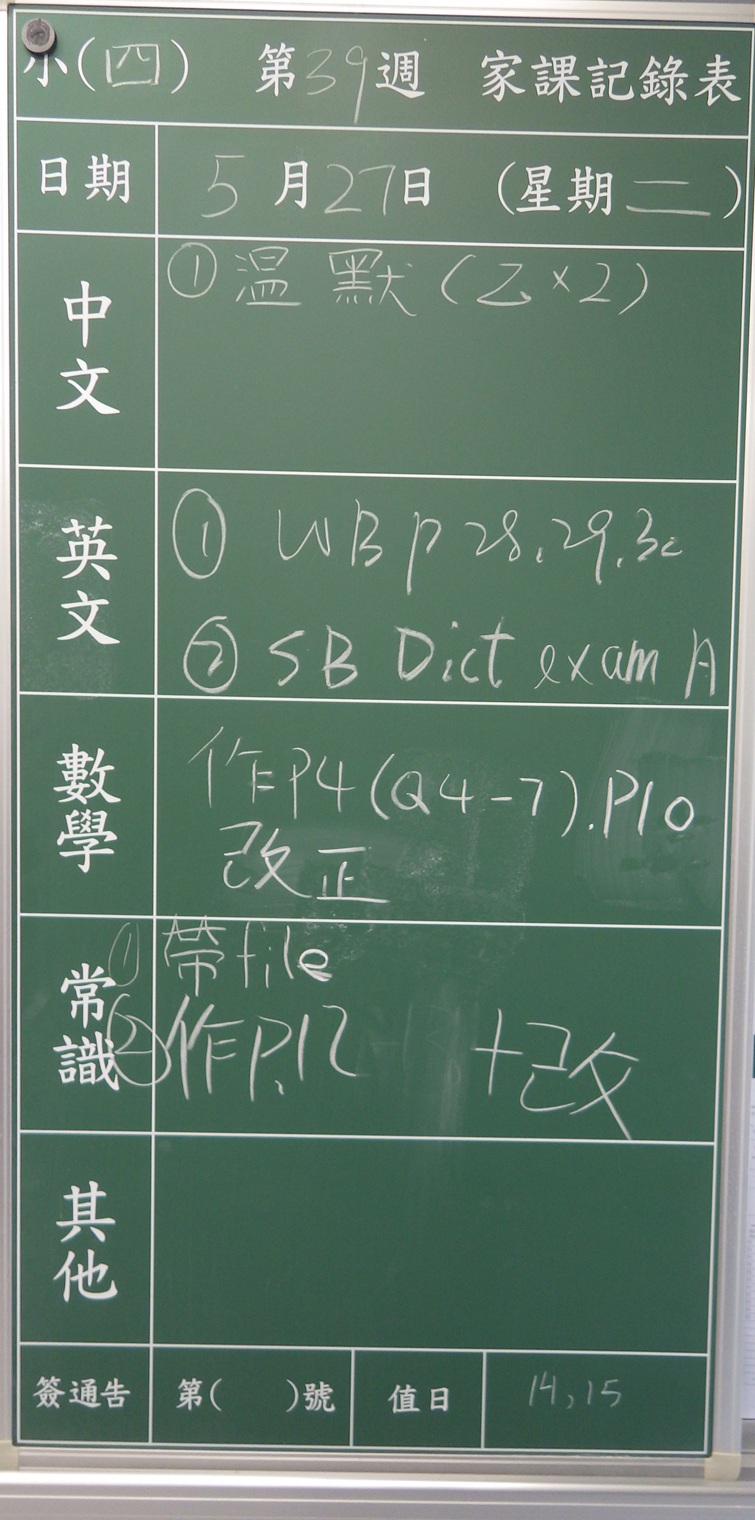 小(四) 第39週 家課記錄表
日期 5月27日 (星期二)
中文 ①溫 默(乙×2)
英文 ① WB p 28.29.30
② SB Dict exam A
數學 作P4(Q4-7).P10
改正
常識 ①帶file
②作P.12 +改
其他
簽通告 第( )號 值日 14,15